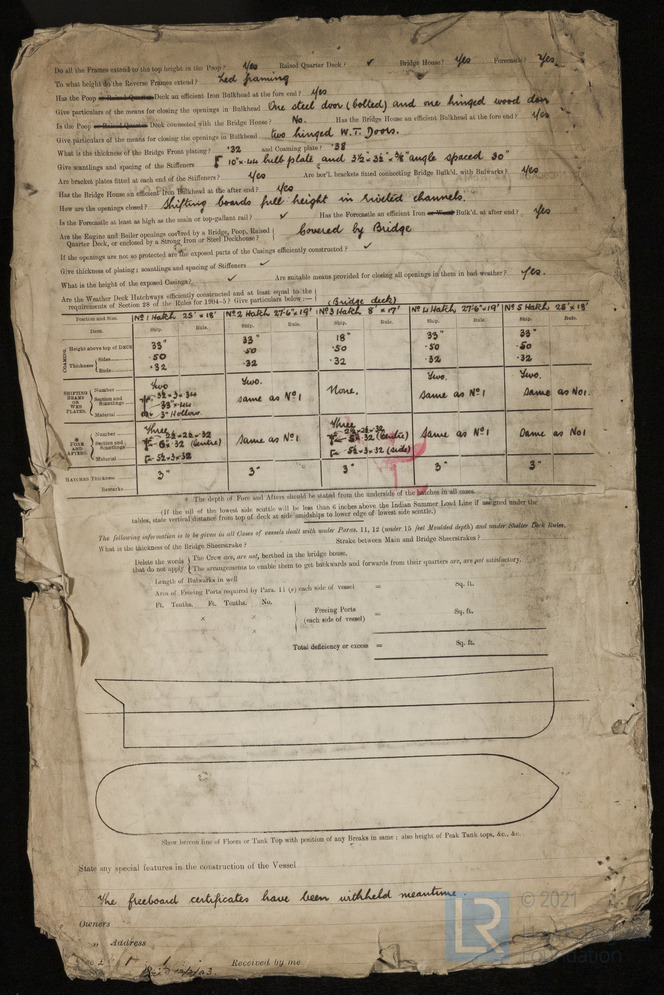 Do all the Frames extend to the top height in the Poop? Yes Raised Quarter Deck? ✓ Bridge House? Yes Forecastle? Yes.
To what height do the Reverse Frames extend? Zed framing
Has the Poop or Raised Quarter Deck an efficient Iron Bulkhead at the fore end? Yes
Give particulars of the means for closing the openings in Bulkhead One steel door (bolted) and one hinged wood door
Is the Poop or Raised Quarter Deck connected with the Bridge House? No. Has the Bridge House an efficient Bulkhead at the fore end? Yes
Give particulars of the means for closing the openings in Bulkhead two hinged W.T. Doors.
What is the thickness of the Bridge Front plating? ·32 and Coaming plate? ·38
Give scantlings and spacing of the Stiffeners 10"×·44 bulb plate and 3½"×3½"×⅜" angle spaced 30"
Are bracket plates fitted at each end of the Stiffeners? Yes Are hor'l. brackets fitted connecting Bridge Bulk'd. with Bulwarks? Yes
Has the Bridge House an efficient Iron Bulkhead at the after end? Yes
How are the openings closed? Shifting boards full height in riveted channels.
Is the Forecastle at least as high as the main or top-gallant rail? ✓ Has the Forecastle an efficient Iron or Wood Bulk'd. at after end? Yes
Are the Engine and Boiler openings covered by a Bridge, Poop, Raised Quarter Deck, or enclosed by a Strong Iron or Steel Deckhouse? Covered by Bridge
If the openings are not so protected are the exposed parts of the Casings efficiently constructed? ✓
Give thickness of plating; scantlings and spacing of Stiffeners ✓
What is the height of the exposed Casings? ✓ Are suitable means provided for closing all openings in them in bad weather? Yes.
Are the Weather Deck Hatchways efficiently constructed and at least equal to the
requirements of Section 28 of the Rules for 1904–5? Give particulars below:— (Bridge deck)
Position and Size. No 1 Hatch 25' × 18' No 2 Hatch 27·6" × 19' No 3 Hatch 8' × 17' No 4 Hatch 27·6" × 19' No 5 Hatch 25' × 18'
Item. Ship. Rule. Ship. Rule. Ship. Rule. Ship. Rule. Ship. Rule.
COAMING Height above top of DECK 33" 33" 18" 33" 33"
Thickness Sides ·50 ·50 ·50 ·50 ·50
Ends ·32 ·32 ·32 ·32 ·32
SHIFTING BEAMS OR WEB PLATES. Number Two Two. None. Two. Two.
Section and Scantlings same as No 1 same as No 1 Same as No 1.
Material 3" Hollow
* FORE AND AFTERS. Number Three Three
Section and Scantlings (centre) Same as No 1 (centre) Same as No 1 Same as No 1
Material 5½×3×·32 5½×3×·32 (side)
HATCHES Thickness 3" 3" 3" 3" 3"
Remarks
* The depth of Fore and Afters should be stated from the underside of the hatches in all cases.
(If the sill of the lowest side scuttle will be less than 6 inches above the Indian Summer Load Line if assigned under the
tables, state vertical distance from top of deck at side amidships to lower edge of lowest side scuttle.)
The following information is to be given in all Cases of vessels dealt with under Paras. 11, 12 (under 15 feet Moulded depth) and under Shelter Deck Rules.
What is the thickness of the Bridge Sheerstrake? Strake between Main and Bridge Sheerstrakes?
Delete the words that do not apply The Crew are, are not, berthed in the bridge house.
The arrangements to enable them to get backwards and forwards from their quarters are, are not satisfactory.
Length of Bulwarks in well
Area of Freeing Ports required by Para. 11 (e) each side of vessel = Sq. ft.
Ft. Tenths. Ft. Tenths. No.
× × Freeing Ports (each side of vessel) = Sq. ft.
Total deficiency or excess = Sq. ft.
Show hereon line of Floors or Tank Top with position of any Breaks in same; also height of Peak Tank tops, &c., &c.
State any special features in the construction of the Vessel
The freeboard certificates have been withheld meantime.
Owners
„ Address
Received by me
LR © 2021
Foundation